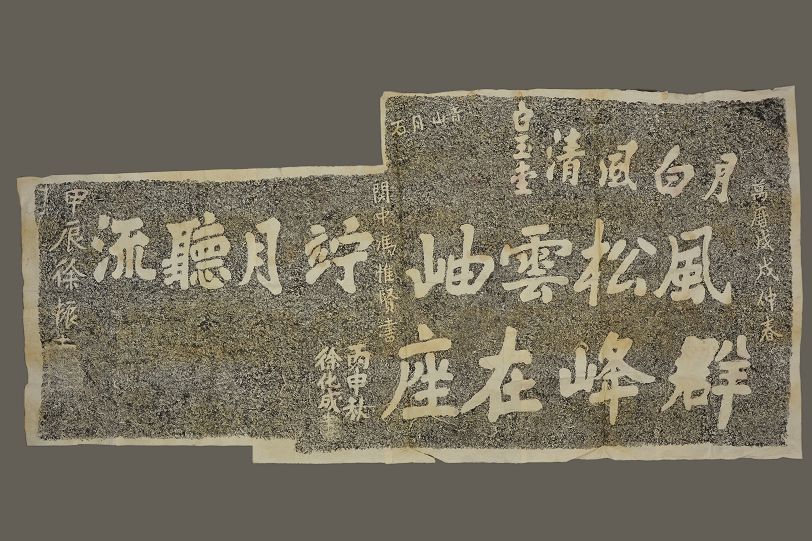 萬曆戊戌仲春
月白風清
白玉
青山月石
風松雲岫
関中馮惟賢書
群峰在座
丙申秋
徐化成書
竚月聽流
甲辰徐振